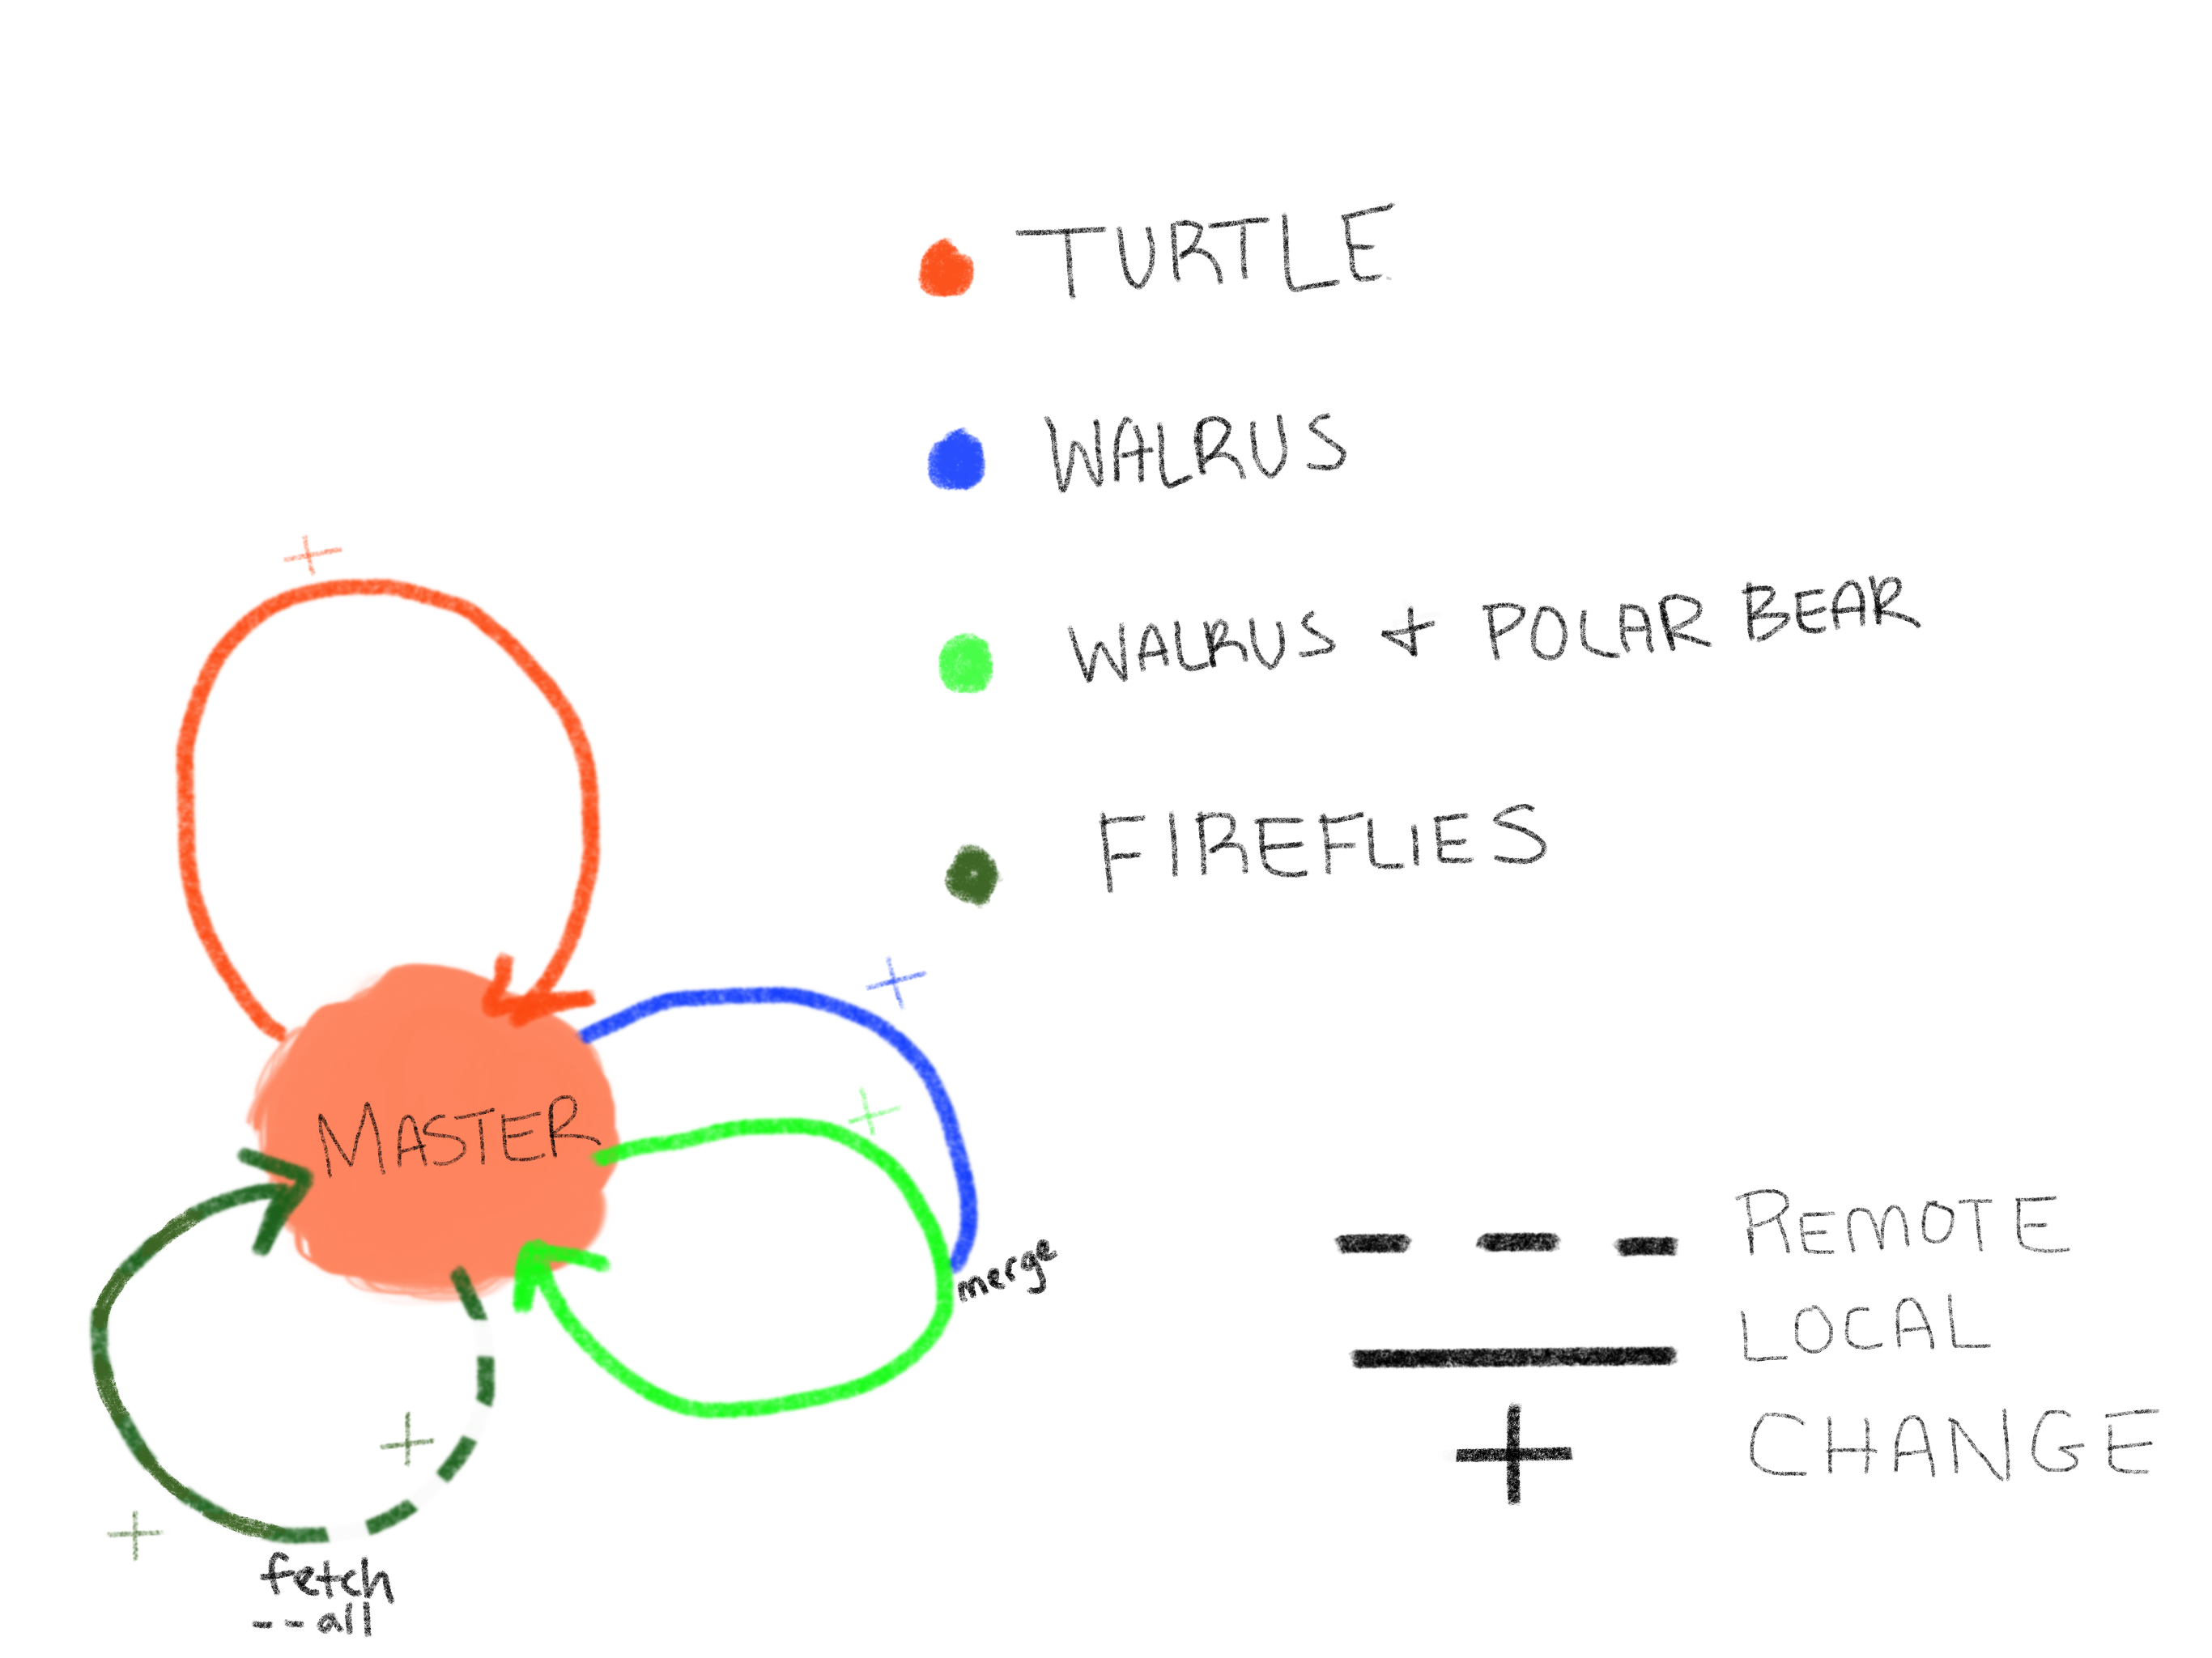 TURTLE
WALRUS
WALRUS + POLAR BEAR
FIREFLIES
MASTER
merge
fetch
--all
REMOTE
LOCAL
CHANGE